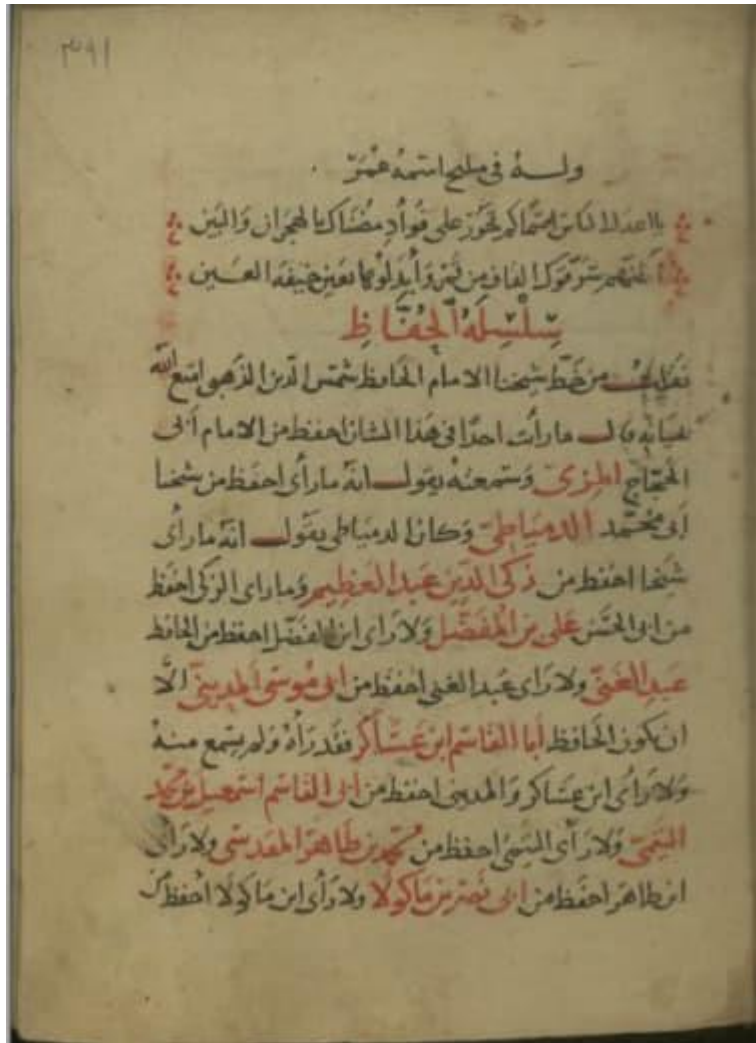 ٣٩١
وله في مليح اسمه عمر
يا اعدل الناس اسما كم تجور على فؤاد مضناك بالهجران والبين
اظنهم سرقوك القاف من قمر وأبدلوها بعين خيفة العين
سلسلة الحفاظ
نقلت من خط شيخنا الامام الحافظ شمس الدين الذهبي امتع الله
ببقائه قال ما رأيت احدا في هذا الشان احفظ من الامام ابي
الحجاج المزي وسمعته يقول انه ما رأى احفظ من شيخنا
أبي محمد الدمياطي وكان الدمياطي يقول انه ما رأى
شيخا احفظ من زكي الدين عبد العظيم وما راى الزكي احفظ
من ابي الحسن علي بن المفضل ولا راى ابن المفضل احفظ من الحافظ
عبد الغني ولا راى عبد الغني احفظ من ابي موسى المديني الا
ان يكون الحافظ أبا القاسم ابن عساكر فقد رآه ولم يسمع منه
ولا رأى ابن عساكر والمديني احفظ من ابي القاسم اسمعيل بن محمد
التيمي ولا رأى التيمي احفظ من محمد بن طاهر المقدسي ولا رأى
ابن طاهر احفظ من ابي نصر بن ماكولا ولا رأى ابن ماكولا احفظ من